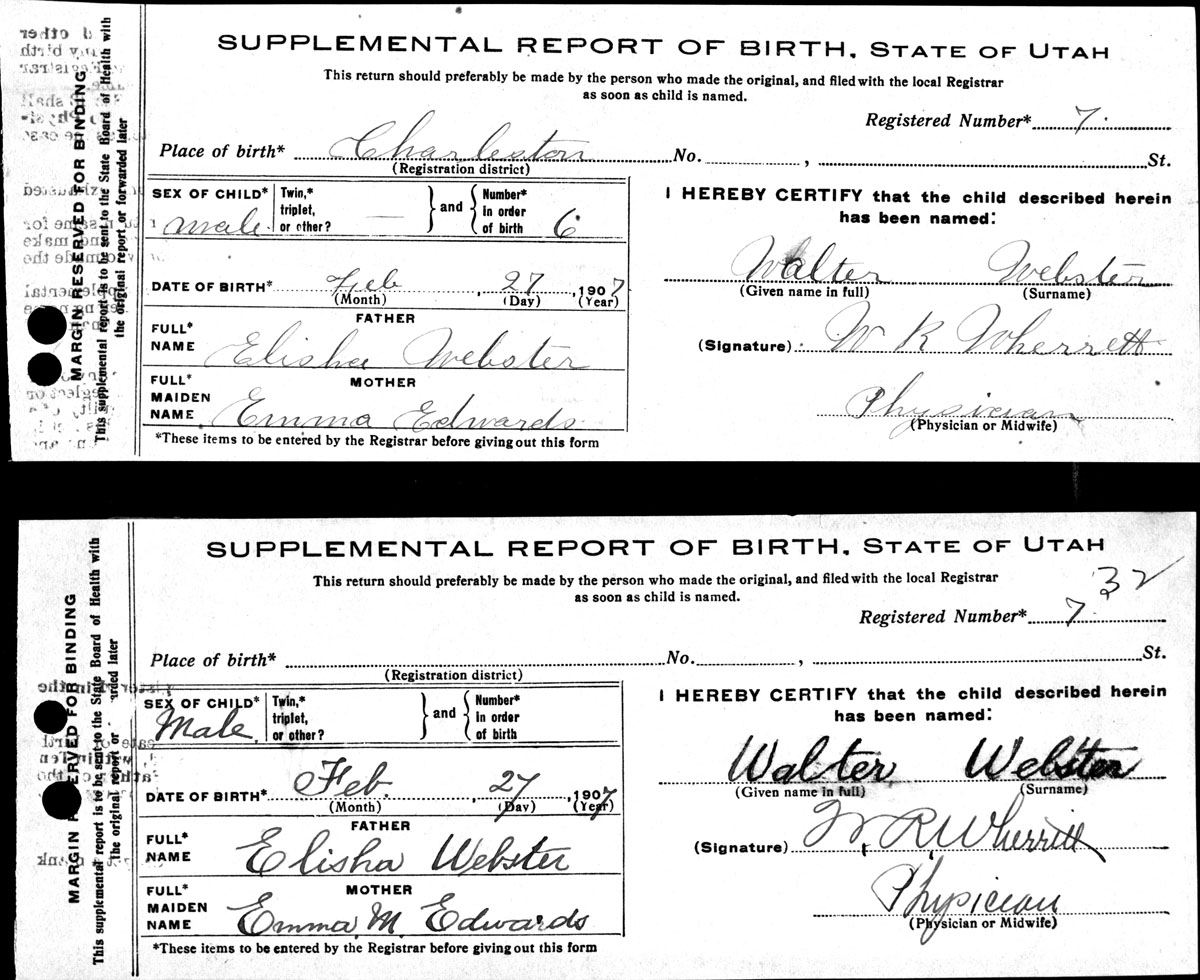 SUPPLEMENTAL REPORT OF BIRTH, STATE OF UTAH
This return should preferably be made by the person who made the original, and filed with the local Registrar
as soon as child is named.
Registered Number* 7.
Place of birth* Charleston No. , St.
(Registration district)
SEX OF CHILD* Twin,* triplet, or other? — } and { Number* in order of birth 6
male
I HEREBY CERTIFY that the child described herein
has been named:
DATE OF BIRTH* Feb , 27 , 1907
(Month) (Day) (Year)
Walter Webster
(Given name in full) (Surname)
FATHER
FULL* NAME Elisha Webster
(Signature) W R Wherrett
MOTHER
FULL* MAIDEN NAME Emma Edwards
Physician
(Physician or Midwife)
*These items to be entered by the Registrar before giving out this form
MARGIN RESERVED FOR BINDING.
This supplemental report is to be sent to the State Board of Health with
the original report or forwarded later
SUPPLEMENTAL REPORT OF BIRTH, STATE OF UTAH
This return should preferably be made by the person who made the original, and filed with the local Registrar
as soon as child is named.
32
Registered Number* 7.
Place of birth* No. , St.
(Registration district)
SEX OF CHILD* Twin,* triplet, or other? } and { Number* in order of birth
Male.
I HEREBY CERTIFY that the child described herein
has been named:
DATE OF BIRTH* Feb. , 27 , 1907
(Month) (Day) (Year)
Walter Webster
(Given name in full) (Surname)
FATHER
FULL* NAME Elisha Webster
(Signature) W. R. Wherritt
MOTHER
FULL* MAIDEN NAME Emma M. Edwards
Physician
(Physician or Midwife)
*These items to be entered by the Registrar before giving out this form
MARGIN RESERVED FOR BINDING
This supplemental report is to be sent to the State Board of Health with
the original report or forwarded later